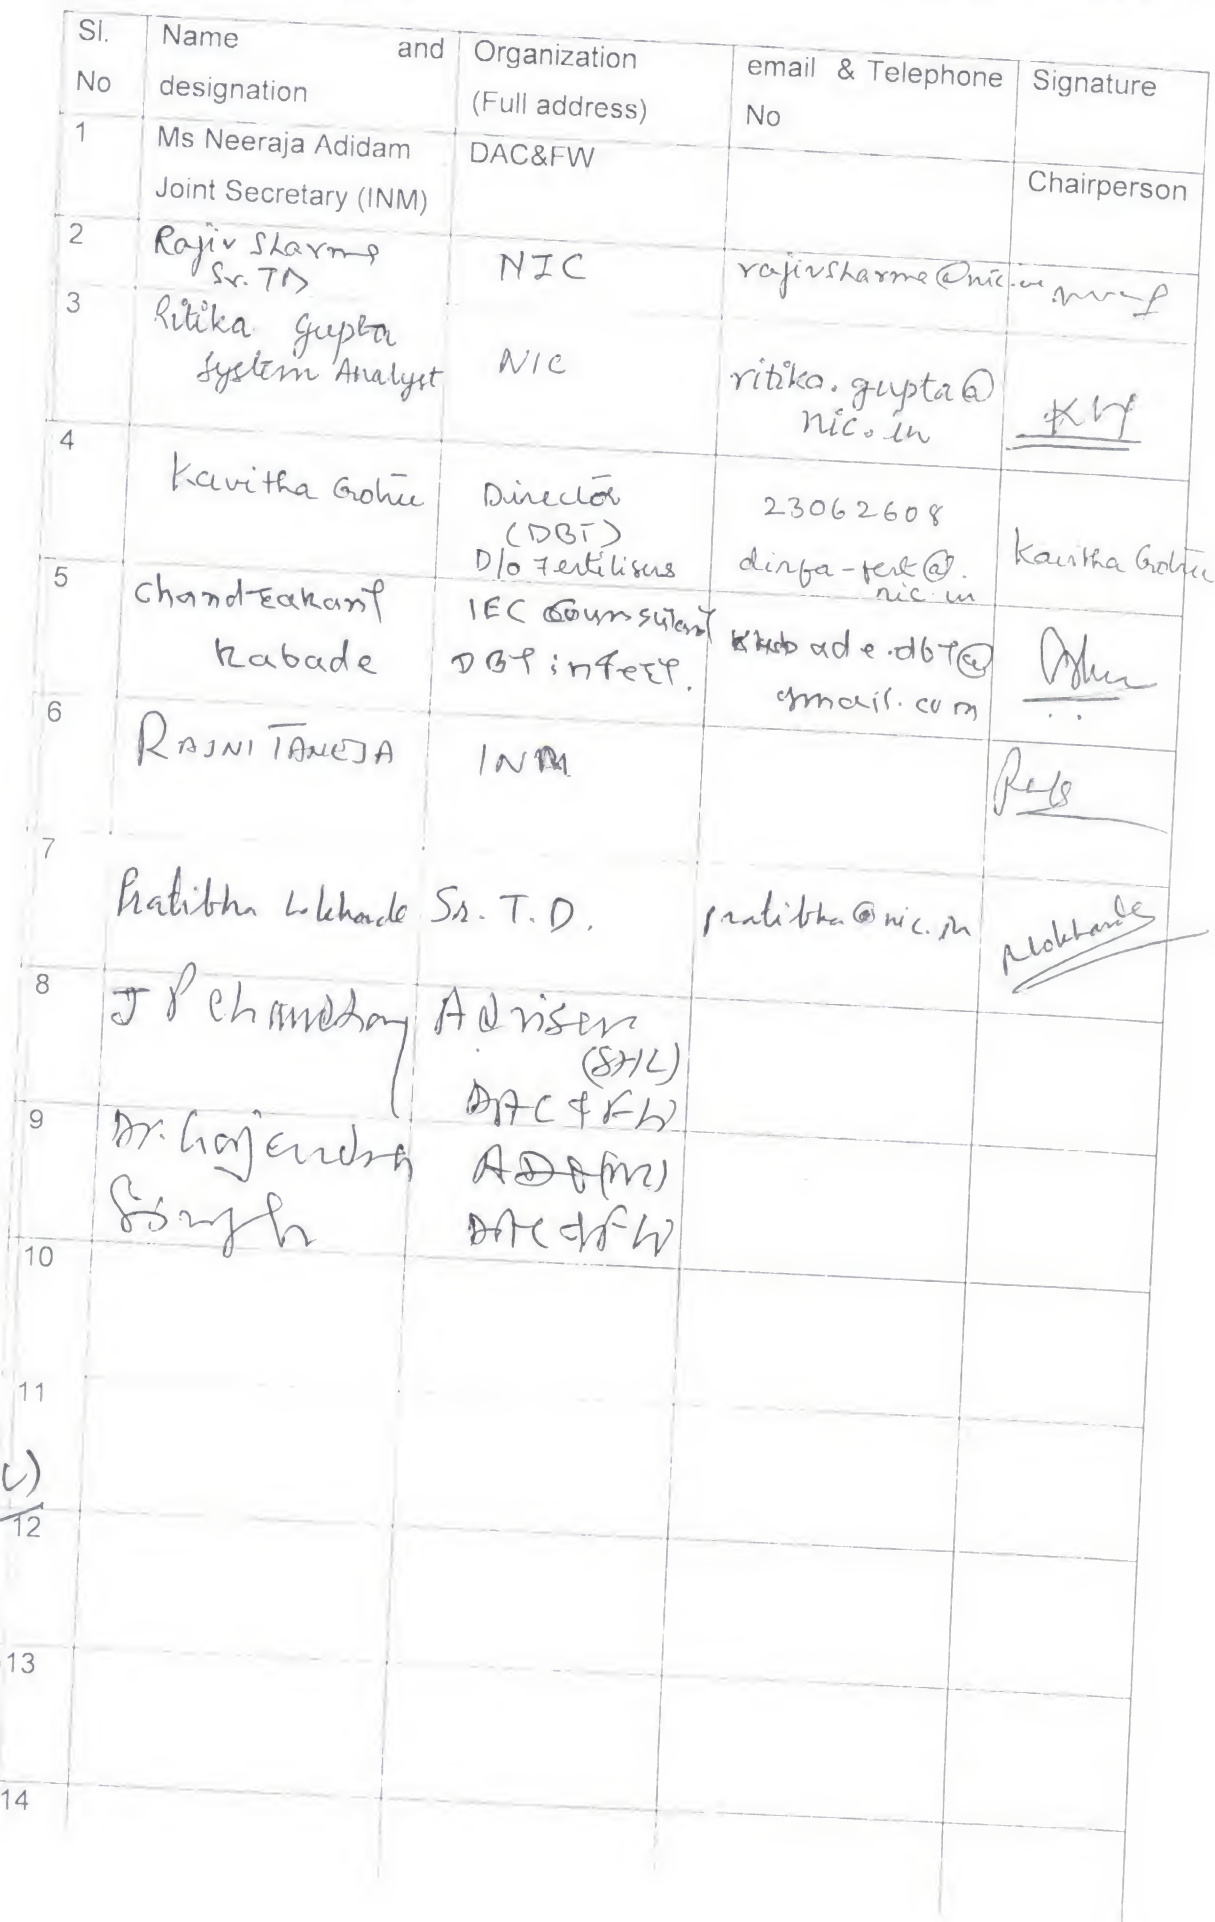 Sl. No
Name and designation
Organization (Full address)
email & Telephone No
Signature
1
Ms Neeraja Adidam
Joint Secretary (INM)
DAC&FW
Chairperson
2
Rajiv Sharma
Sr. TD
NIC
3
Ritika Gupta
System Analyst
NIC
ritika.gupta@
nic.in
4
Kavitha Gotru
Director
(DBT)
D/o Fertilisers
23062608
dirfa-fert@
nic.in
Kavitha Gotru
5
Chandrakant
Kabade
IEC
DBT in Fert.
ade.dbt@
gmail.com
6
RAJNI TANEJA
INM
7
Pratibha Lokhande
Sr. T. D.
pratibha@nic.in
PLokhande
8
J P Chaudhary
Adviser
DAC & FW
9
Dr. Gajendra
Singh
DAC & FW
10
11
12
13
14